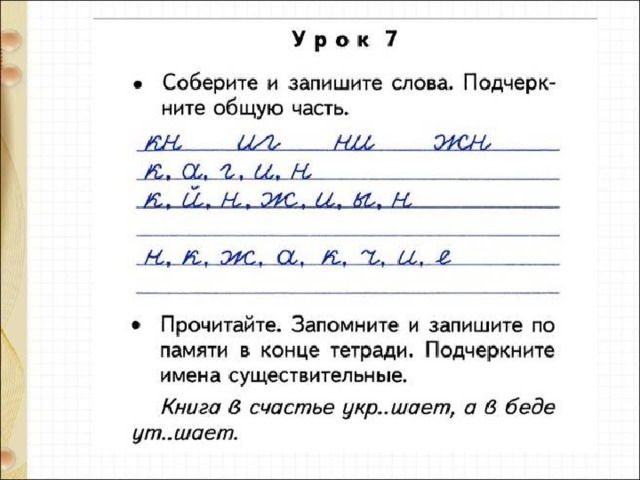 Урок 7
• Соберите и запишите слова. Подчерк-
ните общую часть.
кн иг ни жн
к, а, г, и, н
к, й, н, ж, и, ы, н
н, к, ж, а, к, ч, и, е
• Прочитайте. Запомните и запишите по
памяти в конце тетради. Подчеркните
имена существительные.
Книга в счастье укр..шает, а в беде
ут..шает.